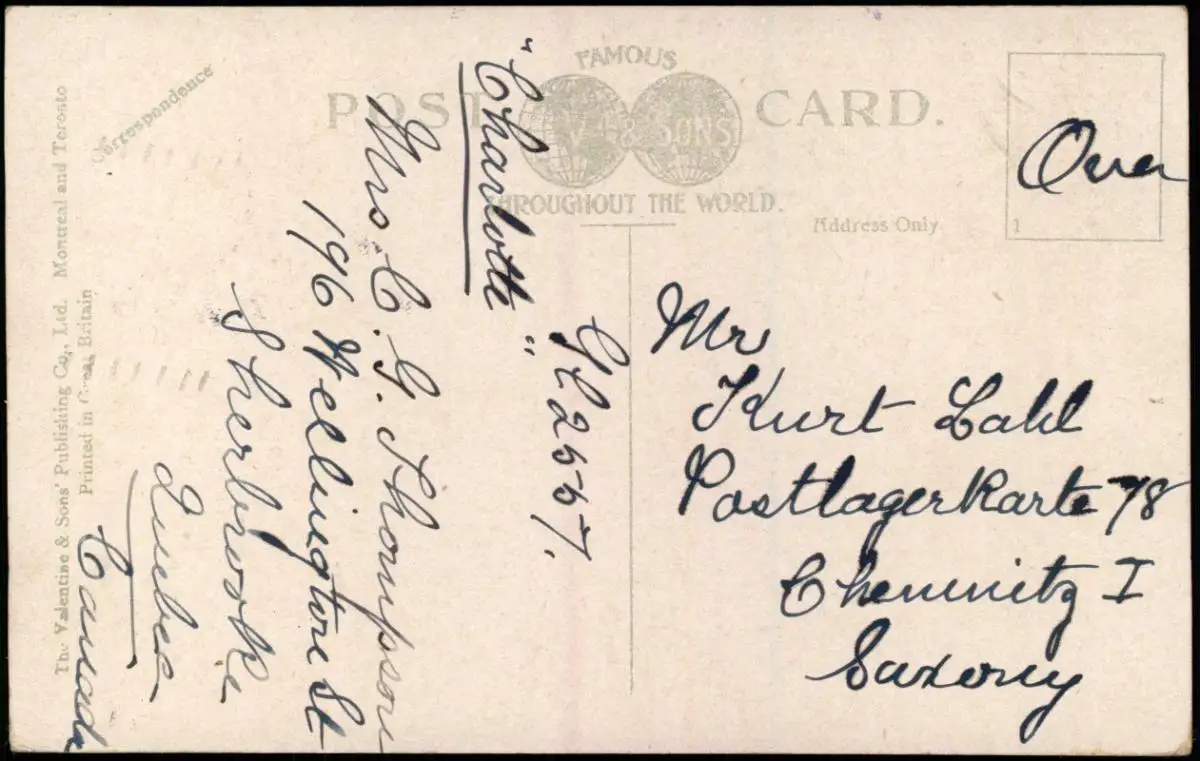 POST CARD.
FAMOUS
V. & SONS
THROUGHOUT THE WORLD.
Correspondence
Address Only
1
Over
The Valentine & Sons' Publishing Co., Ltd. Montreal and Toronto
Printed in Great Britain
GC 2557.
"Charlotte"
Mrs. C. G. Thompson
196 Wellington St
Sherbrooke
Quebec
Canada
Mr
Kurt Lahl
Postlagerkarte 78
Chemnitz I
Saxony